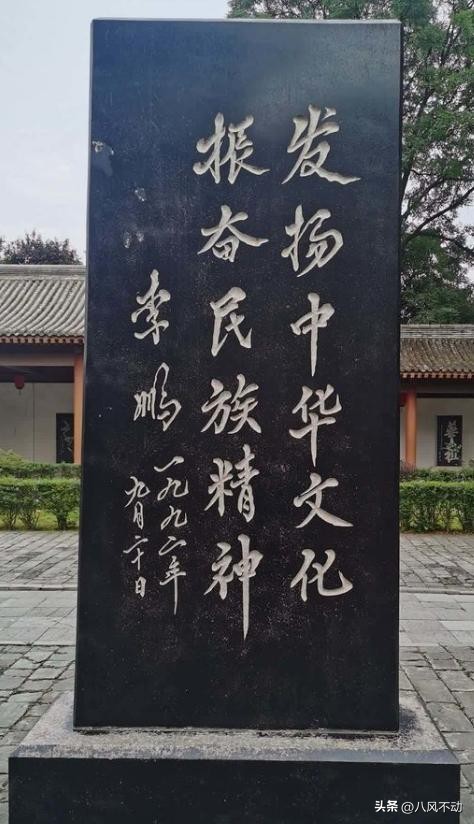 发扬中华文化
振奋民族精神
李鹏
一九九二年
九月二十日
头条 @八风不动